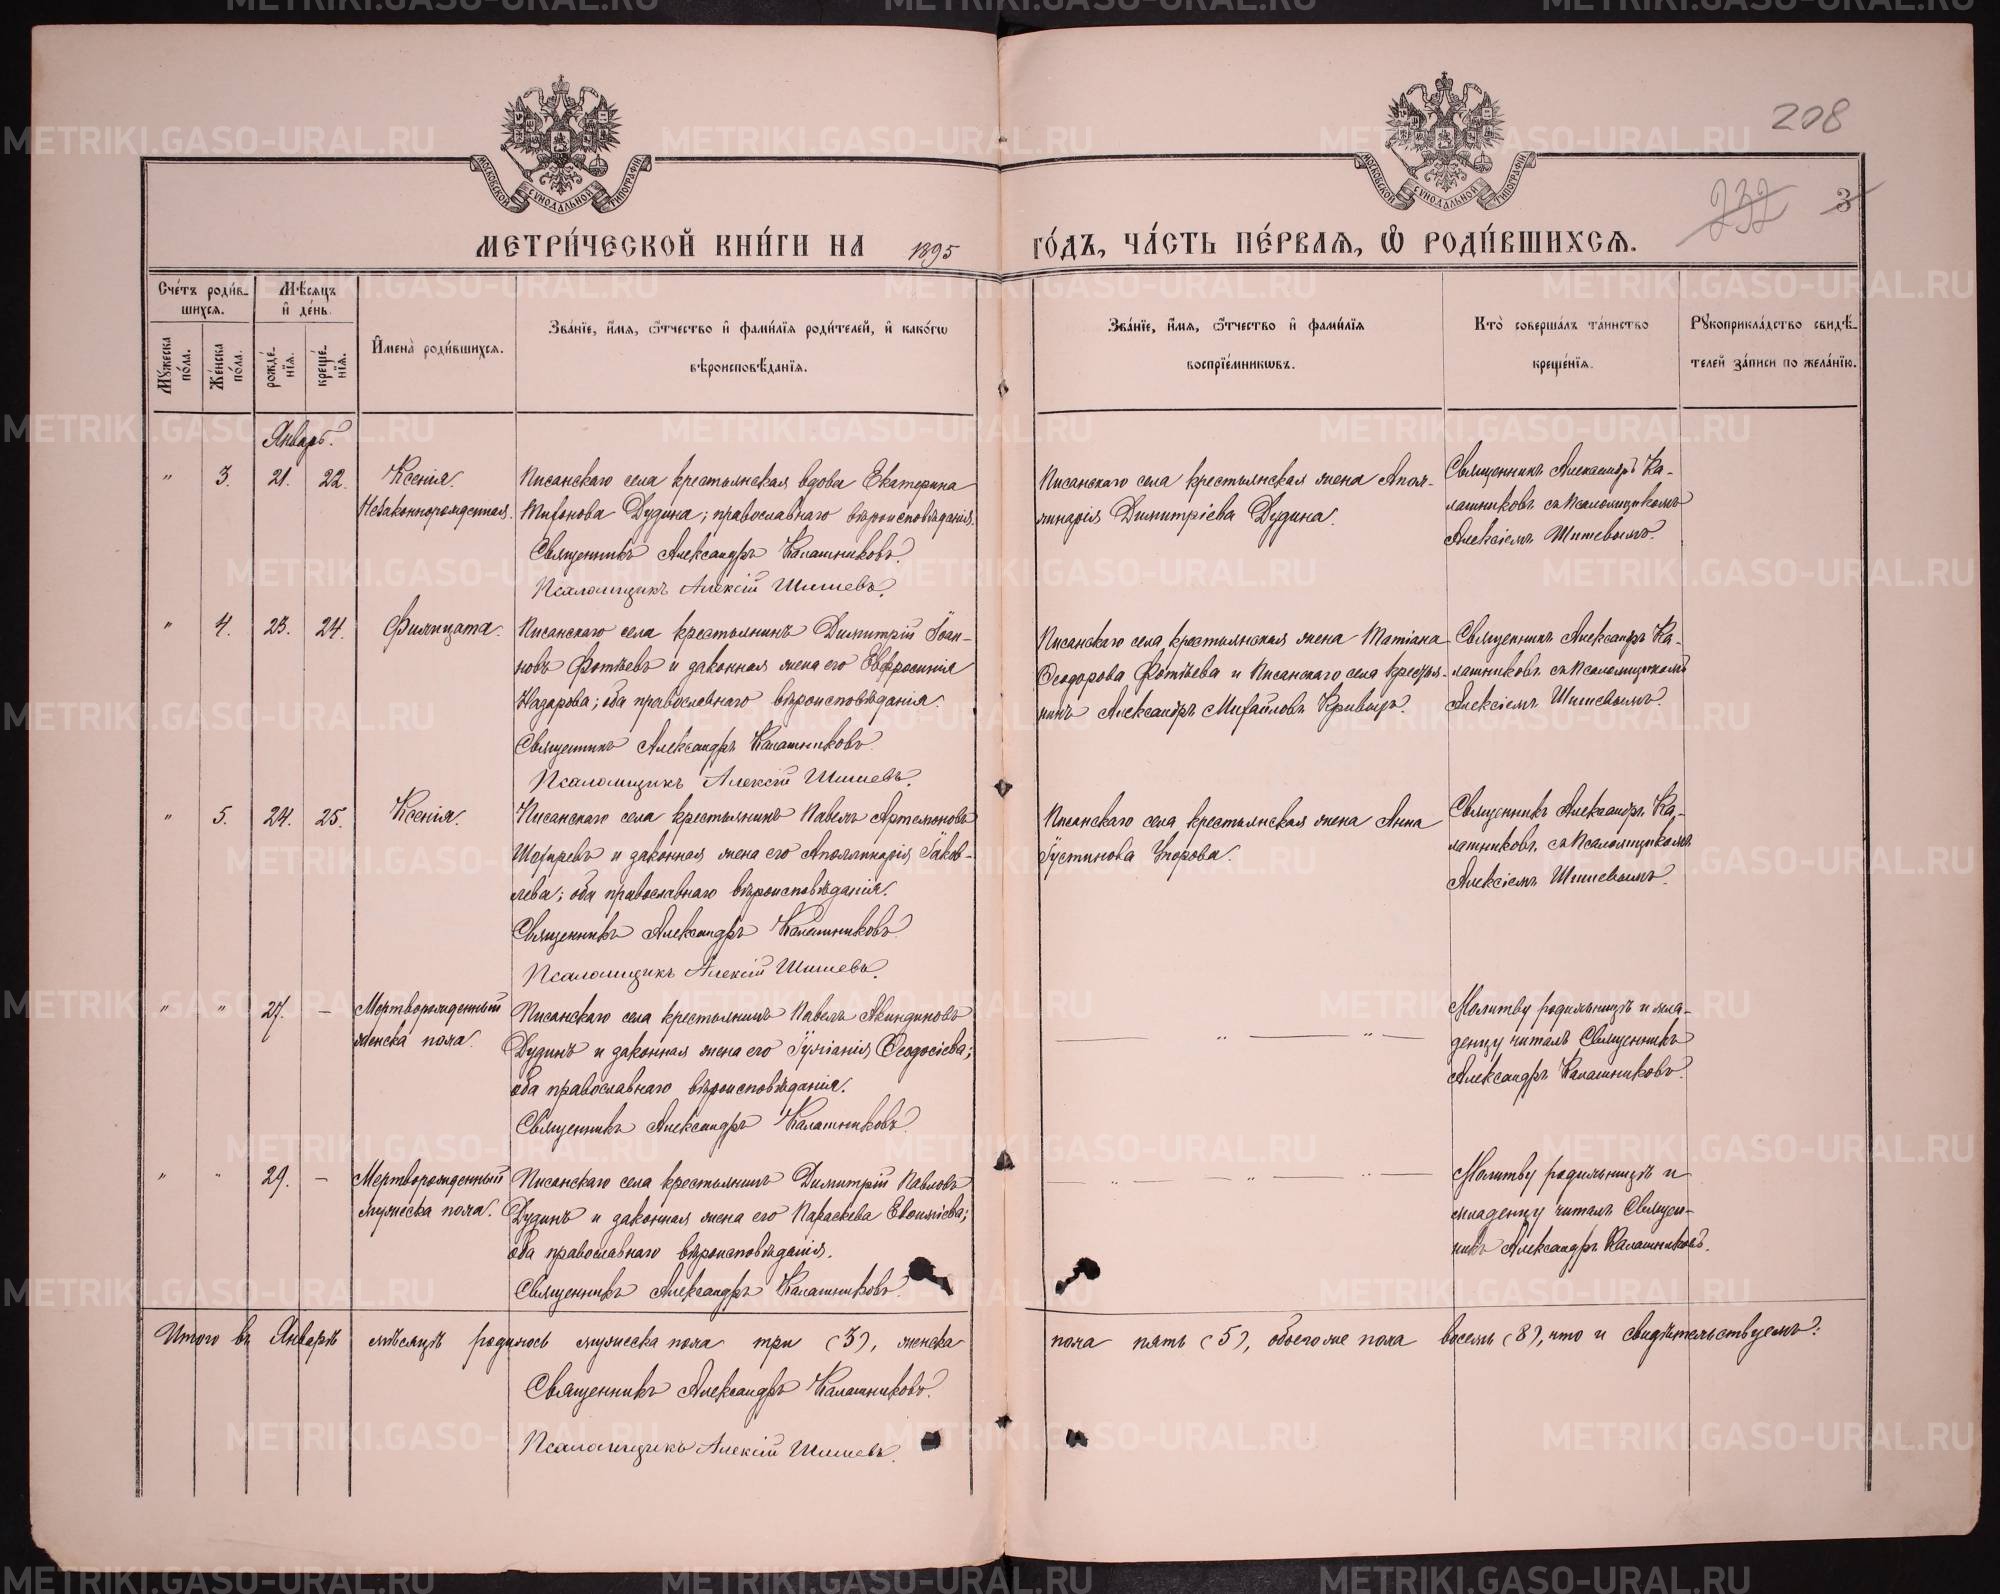 208
232 3
МОСКОВСКОЙ СУНОДАЛЬНОЙ ТИПОГРАФІИ
МОСКОВСКОЙ СУНОДАЛЬНОЙ ТИПОГРАФІИ
МЕТРИ́ЧЕСКОЙ КНИ́ГИ НА 1895 ГО́ДЪ, ЧА́СТЬ ПЕ́РВАѦ, Ѡ РОДИ́ВШИХСѦ.
Сче́тъ роди́в-
шихсѧ.
Мѣ́сѧцъ
и҆ де́нь.
Мꙋ́жеска
по́ла.
Же́нска
по́ла.
рожде́-
нїѧ.
креще́-
нїѧ.
И҆мена̀ роди́вшихсѧ.
Зва́нїе, и҆́мѧ, ѻ҆́тчество и҆ фами́лїѧ роди́телей, и҆ како́гѡ
вѣроисповѣ́данїѧ.
Зва́нїе, и҆́мѧ, ѻ҆́тчество и҆ фами́лїѧ
воспрїе́мникѡвъ.
Кто̀ соверша́лъ та́инство
креще́нїѧ.
Рꙋкоприкла́дство свидѣ́-
телей за́писи по жела́нїю.
Январь.
" 3. 21. 22. Ксенія.
Незаконнорожденная.
Писанскаго села крестьянская вдова Екатерина
Митонова Дудина; православнаго вѣроисповѣданія.
Священникъ Александръ Калашниковъ.
Псаломщикъ Алексій Шишевъ.
Писанскаго села крестьянская жена Апол-
линарія Димитріева Дудина.
Священникъ Александръ Ка-
лашниковъ съ Псаломщикомъ
Алексіемъ Шишевымъ.
" 4. 23. 24. Филицата.
Писанскаго села крестьянинъ Димитрій Іоан-
новъ Фотѣевъ и законная жена его Евфросинія
Назарова; оба православнаго вѣроисповѣданія.
Священникъ Александръ Калашниковъ.
Псаломщикъ Алексій Шишевъ.
Писанскаго села крестьянская жена Татіана
Ѳеодорова Фотѣева и Писанскаго села крестья-
нинъ Александръ Михайловъ Кривыхъ.
Священникъ Александръ Ка-
лашниковъ съ Псаломщикомъ
Алексіемъ Шишевымъ.
" 5. 24. 25. Ксенія.
Писанскаго села крестьянинъ Павелъ Артемоновъ
и законная жена его Аполлинарія Іаков-
лева; оба православнаго вѣроисповѣданія.
Священникъ Александръ Калашниковъ.
Псаломщикъ Алексій Шишевъ.
Писанскаго села крестьянская жена Анна
Іустинова Упорова.
Священникъ Александръ Ка-
лашниковъ съ Псаломщикомъ
Алексіемъ Шишевымъ.
" " 27. — Мертворожденный
женска пола.
Писанскаго села крестьянинъ Павелъ Акиндиновъ
Дудинъ и законная жена его Іуліанія Ѳеодосіева;
оба православнаго вѣроисповѣданія.
Священникъ Александръ Калашниковъ.
— " — " —
Молитву родильницѣ и мла-
денцу читалъ Священникъ
Александръ Калашниковъ.
" " 29. — Мертворожденный
мужеска пола.
Писанскаго села крестьянинъ Димитрій Павловъ
Дудинъ и законная жена его Параскева Евѳиміева;
оба православнаго вѣроисповѣданія.
Священникъ Александръ Калашниковъ.
— " — " — " —
Молитву родильницѣ и
младенцу читалъ Священ-
никъ Александръ Калашниковъ.
Итого въ Январѣ мѣсяцѣ родилось мужеска пола три (3), женска пола пять (5), обоего же пола восемь (8), что и свидѣтельствуемъ:
Священникъ Александръ Калашниковъ.
Псаломщикъ Алексій Шишевъ.
METRIKI.GASO-URAL.RU